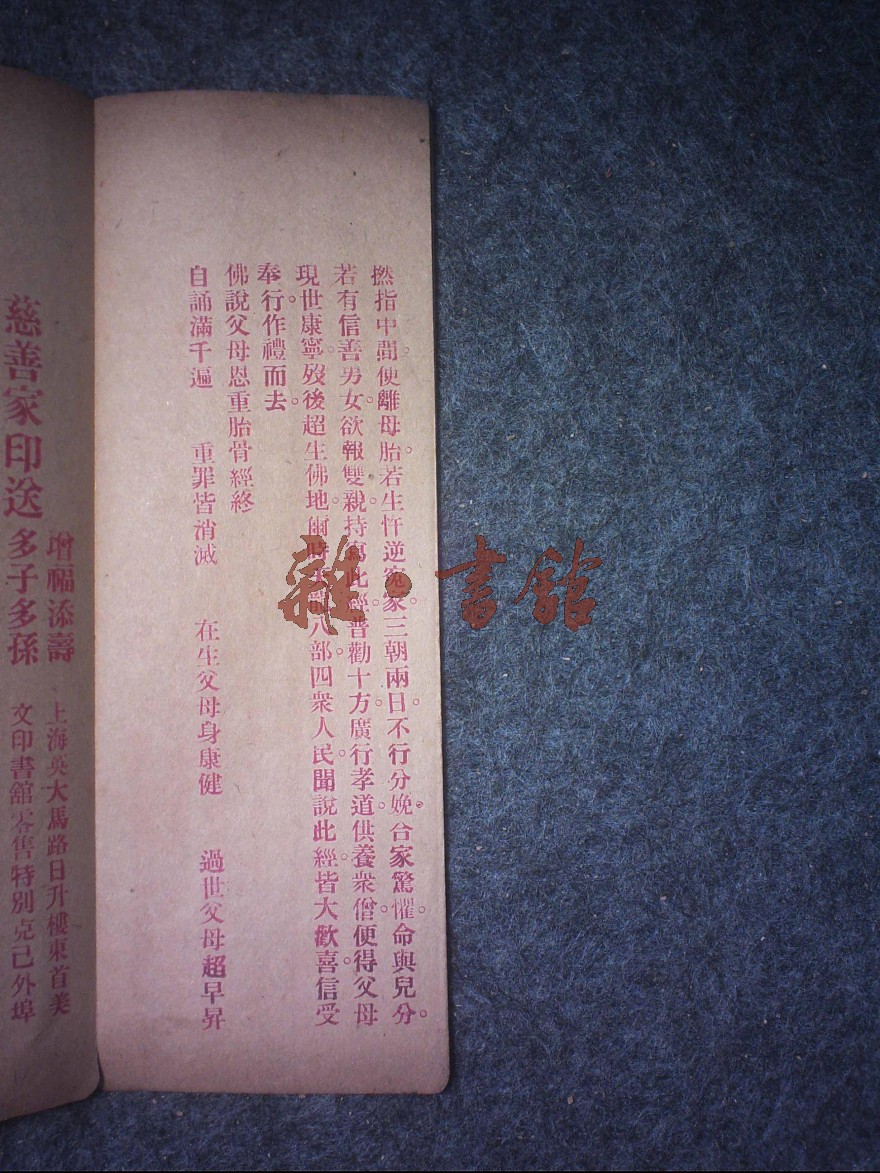 撚指中間。便離母胎。若生忤逆寃家。三朝兩日。不行分娩。合家驚懼。命與兒分。
若有信善男女。欲報雙親。持寫此經。普勸十方。廣行孝道。供養衆僧。便得父母
現世康寧。歿後超生佛地。爾時 八部。四衆人民。聞說此經。皆大歡喜。信受
奉行。作禮而去。
佛說父母恩重胎骨經終
自誦滿千遍 重罪皆消滅 在生父母身康健 過世父母超早昇
慈善家印送
增福添壽
多子多孫
上海英大馬路日升樓東首美
文印書館零售特別克己外埠
雜·書館